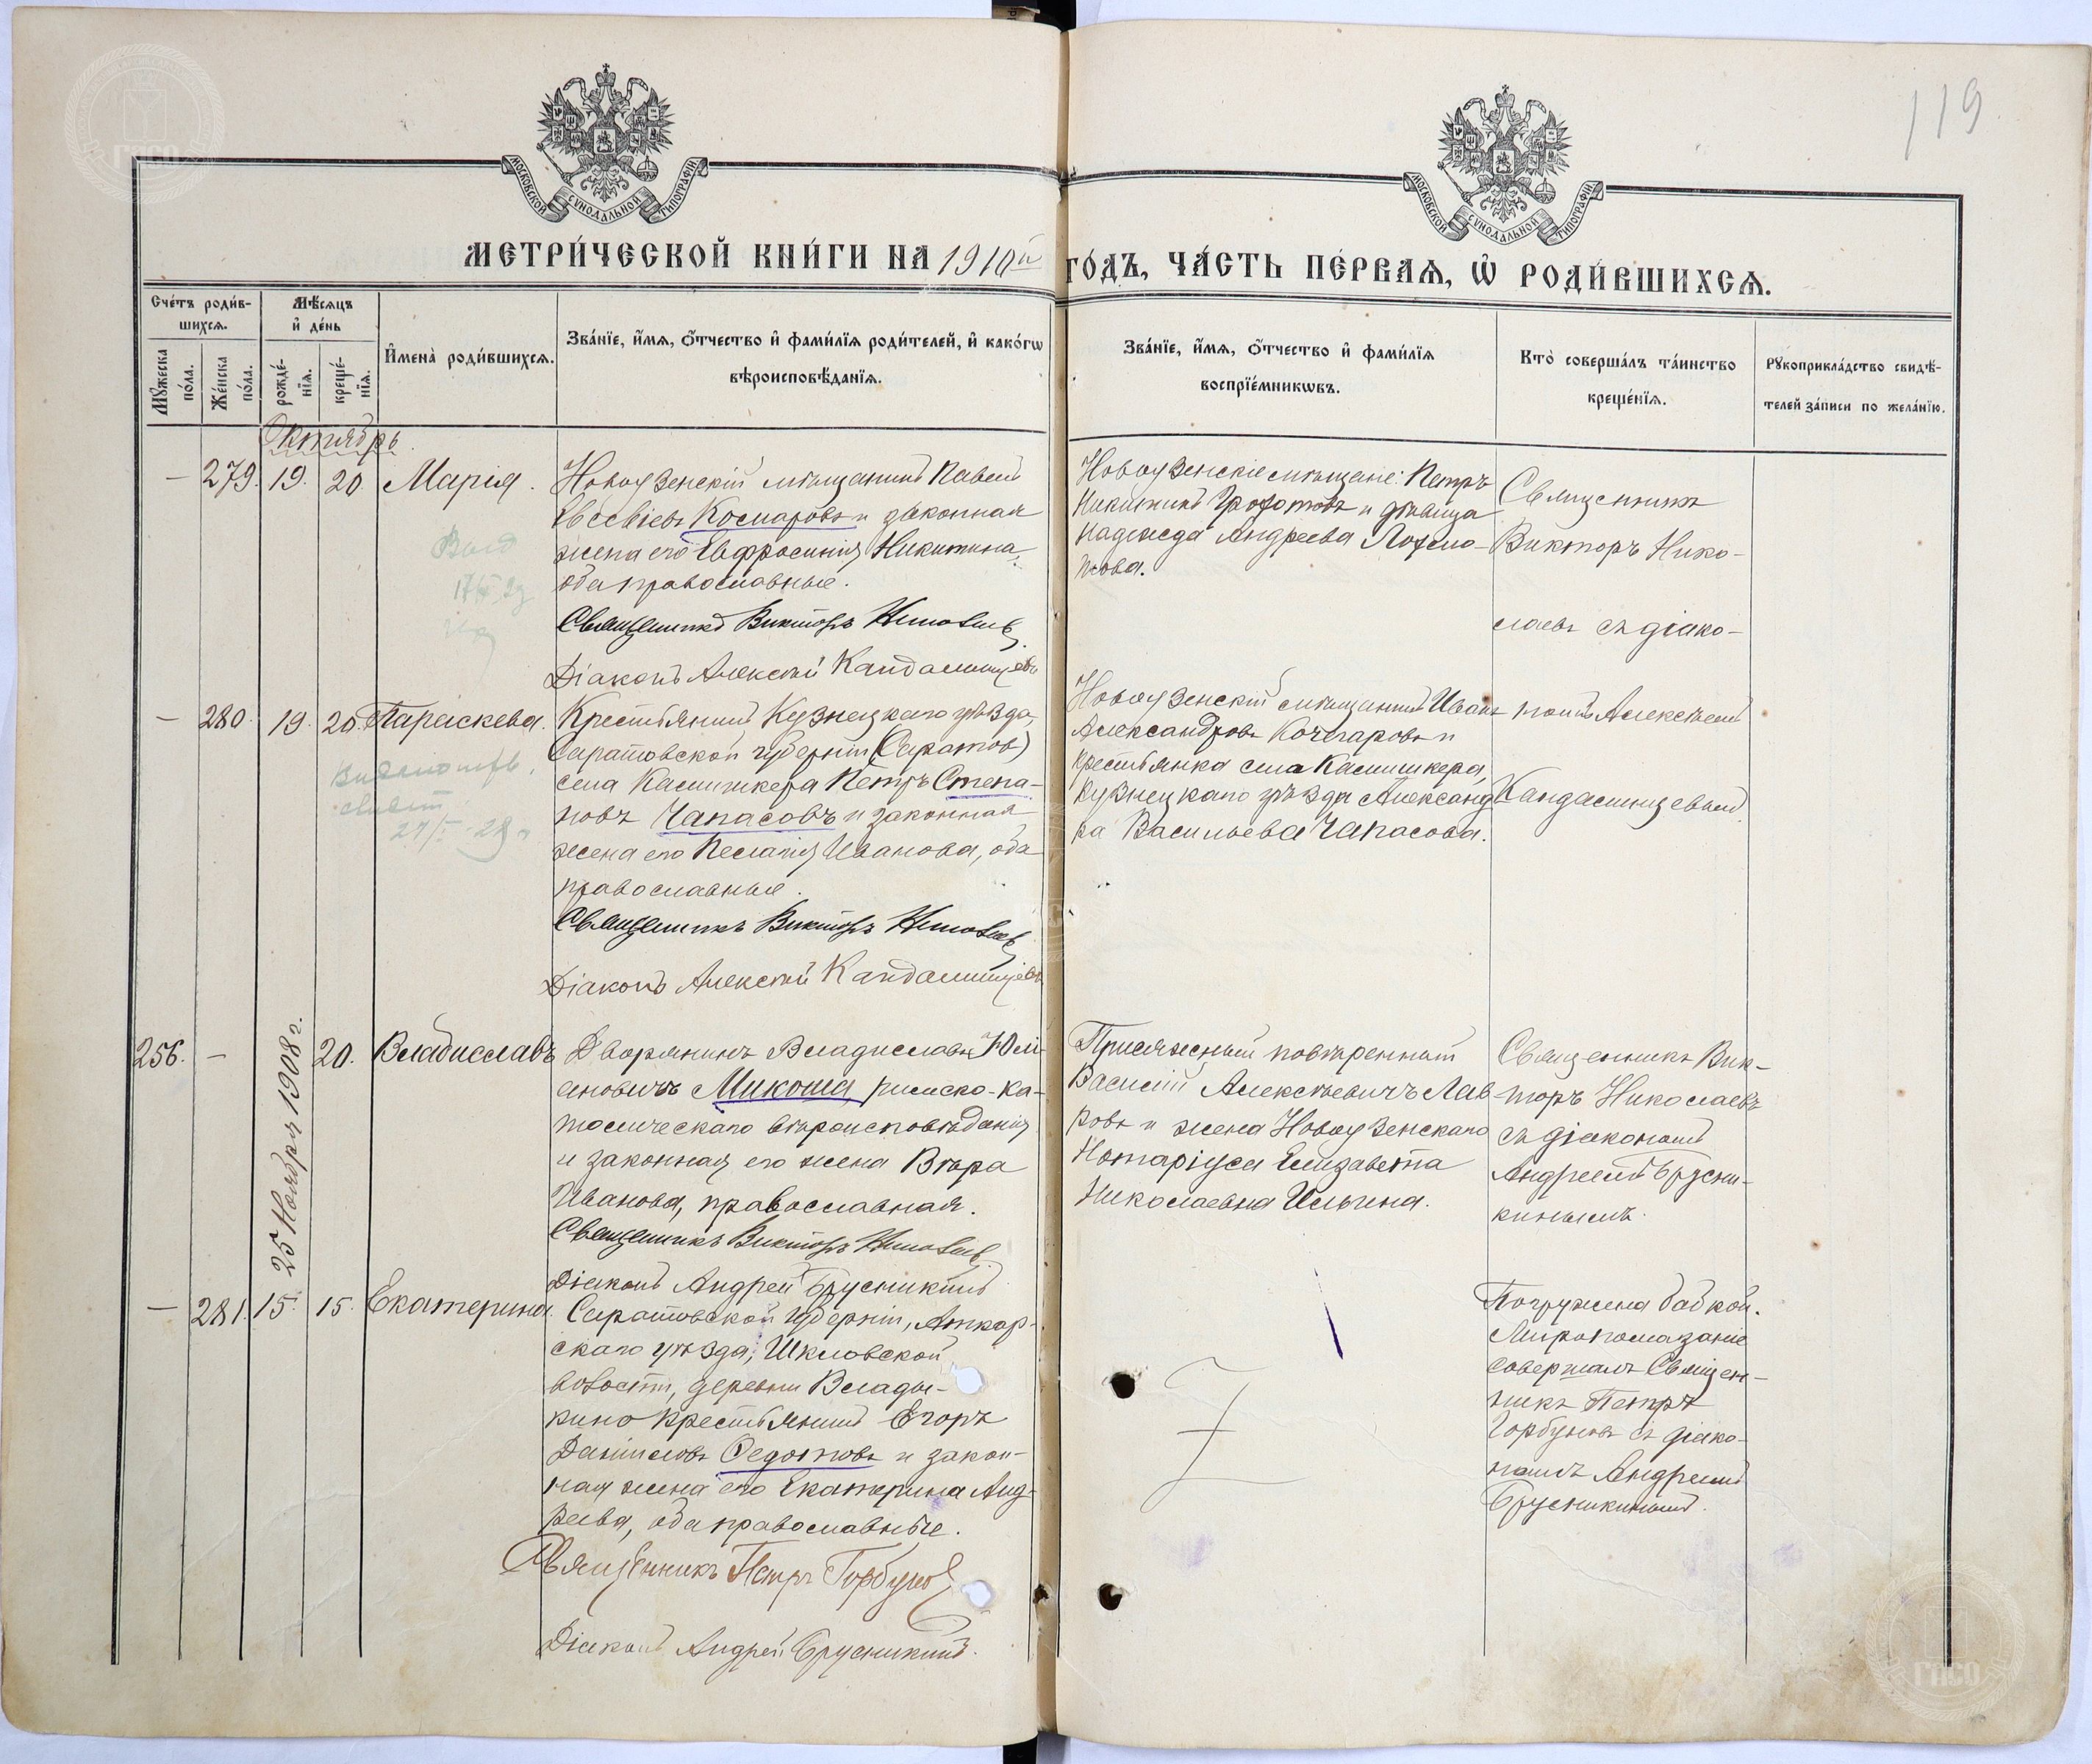 119
МОСКОВСКОЙ СѴНОДАЛЬНОЙ ТИПОГРАФІИ
МОСКОВСКОЙ СѴНОДАЛЬНОЙ ТИПОГРАФІИ
МЕТРИ́ЧЕСКОЙ КНИ́ГИ НА 1910й ГО́ДЪ, ЧА́СТЬ ПЕ́РВАЯ, Ѽ РОДИ́ВШИХСЯ.
Сче́тъ роди́в-
шихсѧ.
Мꙋ́жеска по́ла.
Же́нска по́ла.
Мѣ́сѧцъ
и҆ де́нь
рожде́-
нїѧ.
креще́-
нїѧ.
И҆мена̀ роди́вшихсѧ.
Зва́нїе, и҆́мѧ, ѻ҆́тчество и҆ фами́лїѧ роди́телей, и҆ како́гѡ
вѣроисповѣ́данїѧ.
Зва́нїе, и҆́мѧ, ѻ҆́тчество и҆ фами́лїѧ
воспрїе́мникѡвъ.
Кто̀ соверша́лъ та́инство
креще́нїѧ.
Рꙋкоприкла́дство свидѣ́-
телей за́писи по жела́нїю.
Октябрь.
— 279. 19. 20. Марія.
Новоузенскій мѣщанинъ Павелъ
Евсевіевъ Космаровъ и законная
жена его Евфросинія Никитина,
оба православные.
Священникъ Викторъ Николаевъ
Діаконъ Алексѣй Кандалинцевъ
Новоузенскіе мѣщане: Петръ
Никитинъ и дѣвица
Надежда Андреева
Священникъ
Викторъ Нико-
лаевъ съ діако-
номъ Алексѣемъ
Кандалинцевымъ.
— 280. 19. 20. Параскева.
28
Крестьянинъ Кузнецкаго уѣзда,
Саратовской губерніи (Саратов)
села Камышкера Петръ Степа-
новъ Чапасовъ и законная
жена его Пелагія Иванова, оба
православные.
Священникъ Викторъ Николаевъ
Діаконъ Алексѣй Кандалинцевъ
Новоузенскій мѣщанинъ Иванъ
Александровъ Кочгаровъ и
крестьянка села Камышкера,
Кузнецкаго уѣзда Александ-
ра Васильева Чапасова.
256. — 25 Ноября 1908 г. 20. Владиславъ
Дворянинъ Владиславъ Юлі-
ановичъ Микоша, римско-ка-
толическаго вѣроисповѣданія
и законная его жена Вѣра
Иванова, православная.
Священникъ Викторъ Николаевъ
Діаконъ Андрей Брусникинъ
Присяжный повѣренный
Василій Алексѣевичъ Лав-
ровъ и жена Новоузенскаго
Нотаріуса Елизавета
Николаевна Ильина.
Священникъ Вик-
торъ Николаевъ
съ діакономъ
Андреемъ Брусни-
кинымъ.
— 281. 15. 15. Екатерина.
Саратовской губерніи, Аткар-
скаго уѣзда, Шкловской
волости, деревни Влады-
кино крестьянинъ Егоръ
Даниловъ Федотовъ и закон-
ная жена его Екатерина Анд-
реева, оба православные.
Священникъ Петръ Горбуновъ
Діаконъ Андрей Брусникинъ.
Погружена бабкой.
Миропомазаніе
совершалъ Священ-
никъ Петръ
Горбуновъ съ діако-
номъ Андреемъ
Брусникинымъ.
ГАСО
ГАСО